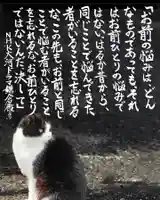 「お前の悩みは、どん
なものであってもそれ
はお前ひとりの悩みで
はない。はるか昔から、
同じことで悩んできた
者がいることを忘れる
な。この先も、お前と同じ
ことで悩む者がいること
を忘れるな。お前ひとり
ではないんだ。決して」
NHK大河ドラマ 鎌倉殿